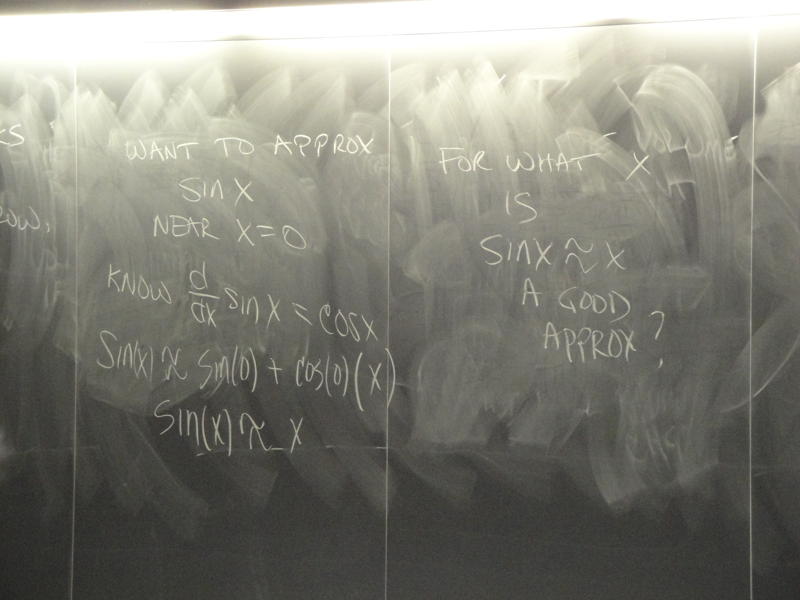 WANT TO APPROX
sin x
NEAR x=0
KNOW d/dx sin x = cos x
Sin(x) ≈ Sin(0) + cos(0)(x)
Sin(x) ≈ x
FOR WHAT x
IS
Sinx ≈ x
A GOOD
APPROX?